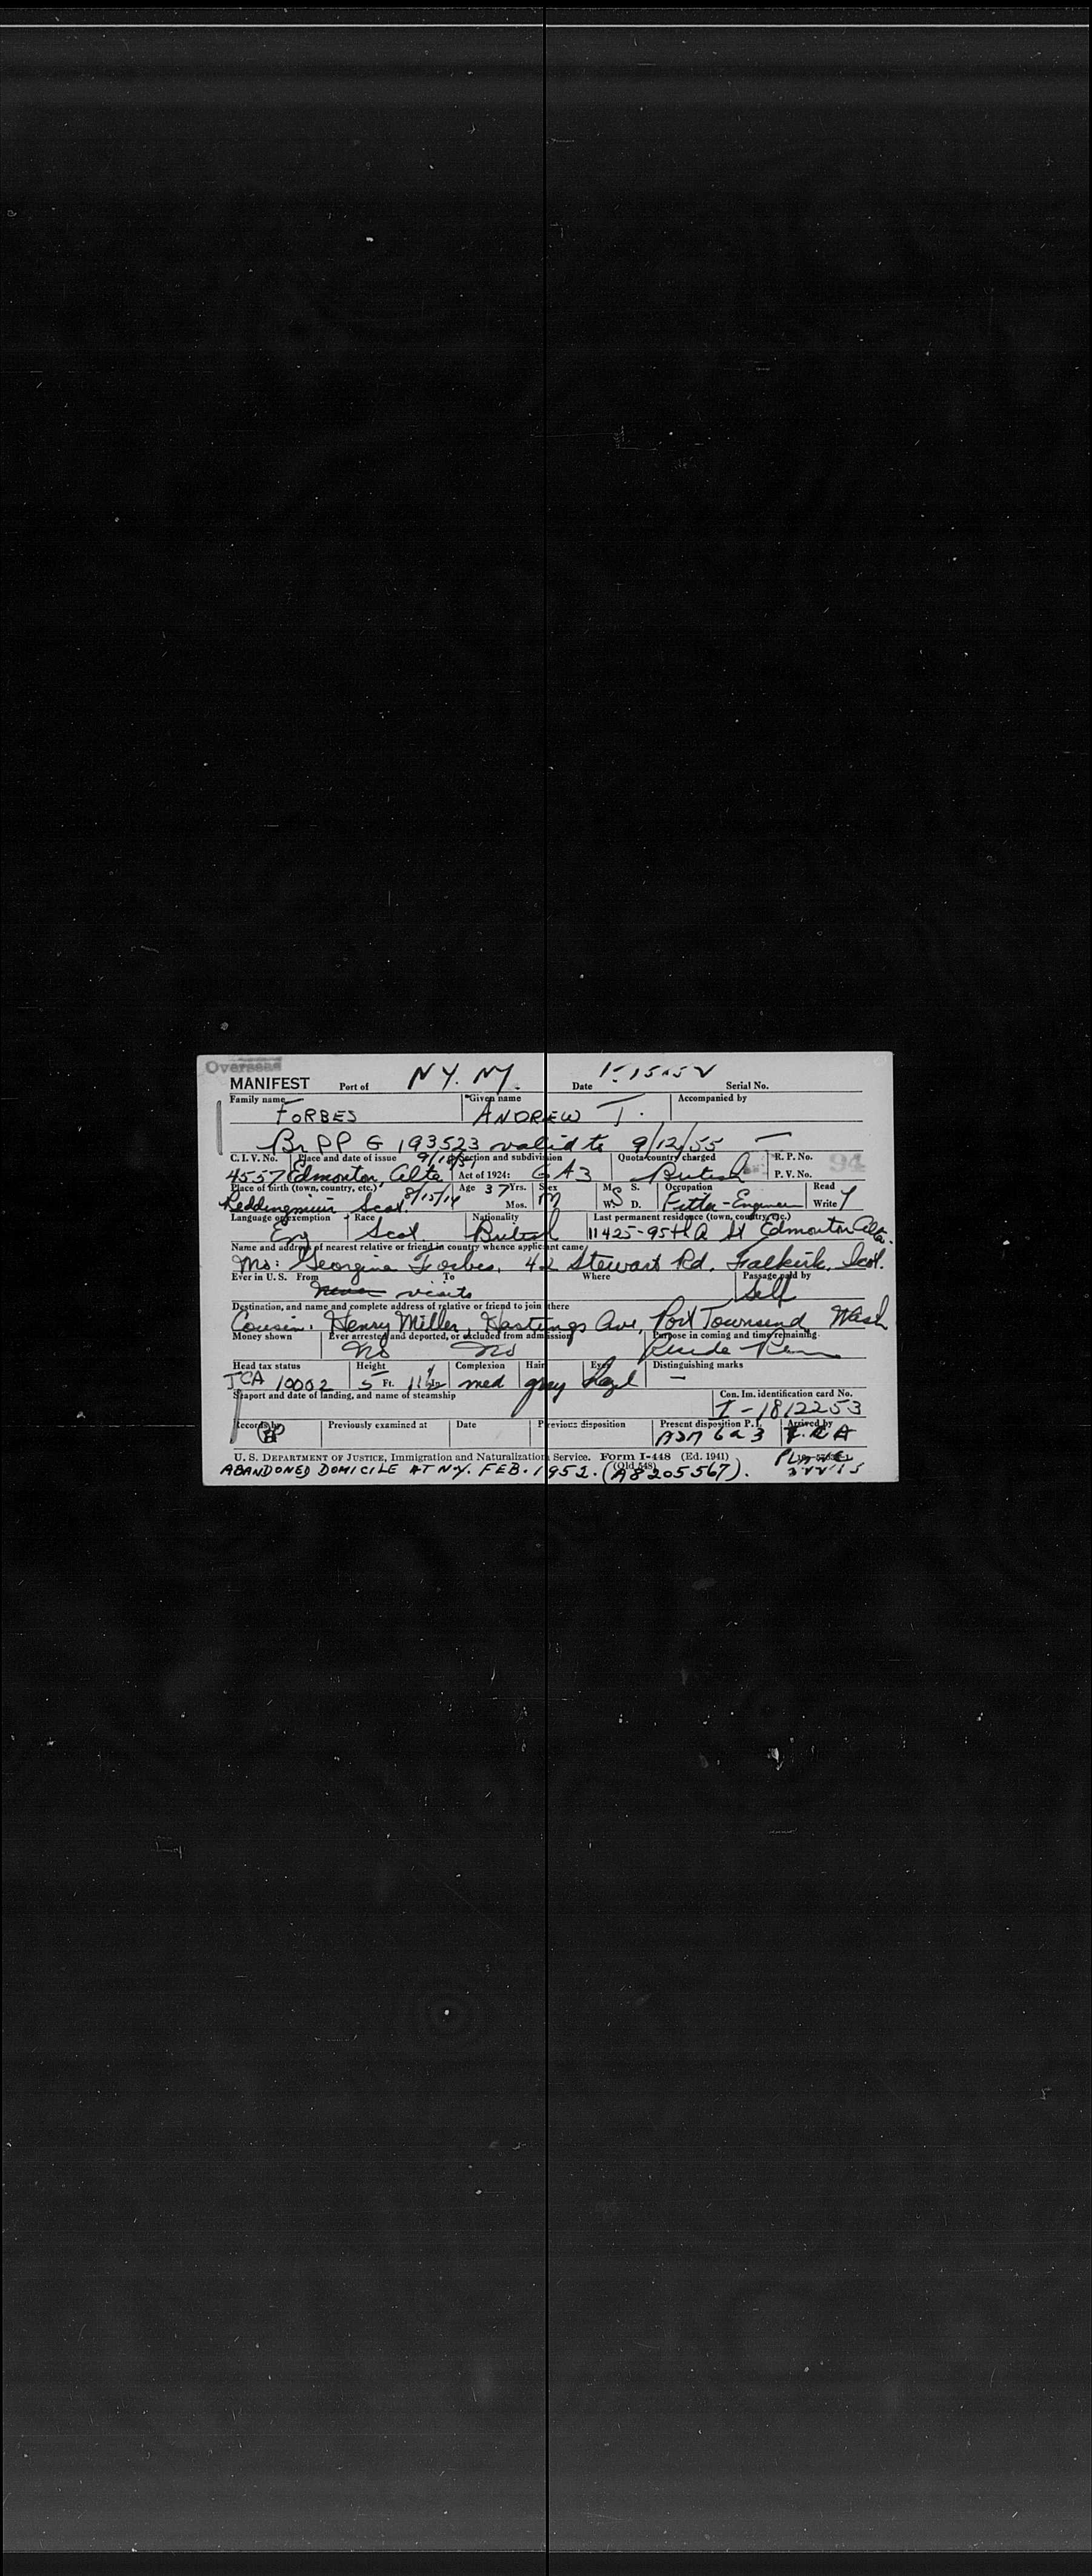 Overseas
MANIFEST Port of N Y. N Y. Date Serial No.
Family name Given name Accompanied by
FORBES ANDREW T.
Br PP G 193523 valid to 9/12/55
C. I. V. No. Place and date of issue Section and subdivision Quota country charged R. P. No. 94
4557 Edmonton, Alta Act of 1924: 6 A 3 British P. V. No.
Place of birth (town, country, etc.) Age 37 Yrs. Sex M. S. Occupation Read
Reddingmuir Scot. 8/15/14 Mos. M W. D. Fitter-Engineer Write Y
Language or exemption Race Nationality Last permanent residence (town, country, etc.)
Eng Scot. British 11425-95th A St Edmonton Alta.
Name and address of nearest relative or friend in country whence applicant came
Mo: Georgina Forbes, 42 Stewart Rd, Falkirk, Scot.
Ever in U. S. From To Where Passage paid by
never visits Self
Destination, and name and complete address of relative or friend to join there
Cousin: Henry Miller, Hastings Ave, Port Townsend Wash
Money shown Ever arrested and deported, or excluded from admission Purpose in coming and time remaining
No No Reside Perm
Head tax status Height Complexion Hair Eyes Distinguishing marks
TCA 10002 5 Ft. 11 1/2 med gray Hazel —
Seaport and date of landing, and name of steamship Con. Im. identification card No.
I-1812253
Record by Previously examined at Date Previous disposition Present disposition P. I. Arrived by
ADM 6 a 3 T. C A
U. S. DEPARTMENT OF JUSTICE, Immigration and Naturalization Service. Form I-448 (Ed. 1941)
(Old 548)
ABANDONED DOMICILE AT N.Y. FEB. 1952. (A8205567).